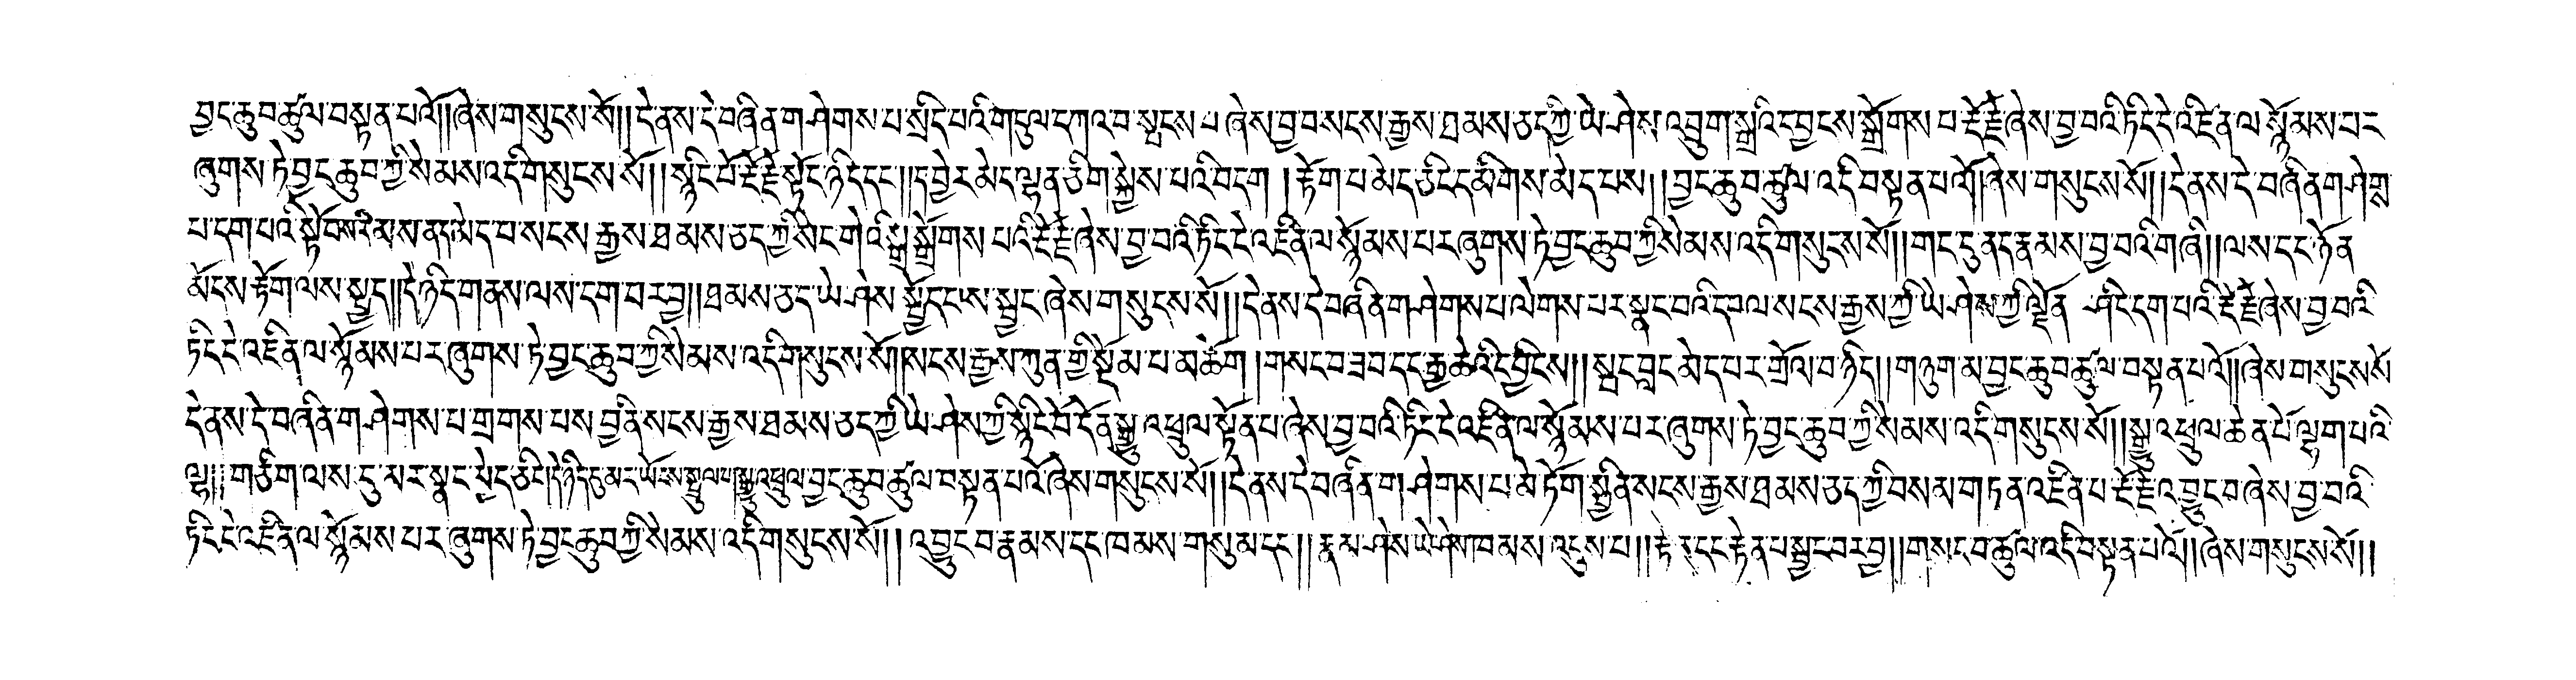 བྱང་ཆུབ་ཚུལ་བསྟན་པའོ། །ཞེས་གསུངས་སོ། །དེ་ནས་དེ་བཞིན་གཤེགས་པ་སྲིད་པའི་གདུལ་དཀའ་བ་སྤངས་པ་ཞེས་བྱ་བ་སངས་རྒྱས་ཐམས་ཅད་ཀྱི་ཡེ་ཤེས་འབྲུག་སྒྲའི་དབྱངས་སྒྲོགས་པ་རྡོ་རྗེ་ཞེས་བྱ་བའི་ཏིང་ངེ་འཛིན་ལ་སྙོམས་པར་
ཞུགས་ཏེ་བྱང་ཆུབ་ཀྱི་སེམས་འདི་གསུངས་སོ། །སྙིང་པོ་རྡོ་རྗེ་སྟོང་ཉིད་དང་། །དབྱེར་མེད་ལྷན་ཅིག་སྐྱེས་པའི་བདག །རྟོག་པ་མེད་ཅིང་དམིགས་མེད་པས། །བྱང་ཆུབ་ཚུལ་འདི་བསྟན་པའོ། །ཞེས་གསུངས་སོ། །དེ་ནས་དེ་བཞིན་གཤེགས་
པ་དག་པའི་སྟོབས་རིམས་ནད་མེད་པ་སངས་རྒྱས་ཐམས་ཅད་ཀྱི་སེང་གེའི་སྒྲ་སྒྲོགས་པའི་རྡོ་རྗེ་ཞེས་བྱ་བའི་ཏིང་ངེ་འཛིན་ལ་སྙོམས་པར་ཞུགས་ཏེ་བྱང་ཆུབ་ཀྱི་སེམས་འདི་གསུངས་སོ། །གང་དུ་ནད་རྣམས་བྱ་བའི་གཞི། །ལས་དང་ཉོན་
མོངས་རྟོག་ལས་སྤྱད། །དེ་ཉིད་གནས་ལས་དག་པར་བྱ། །ཐམས་ཅད་ཡེ་ཤེས་སྤྱོད་ངས་སྦྱང་ཞེས་གསུངས་སོ། །དེ་ནས་དེ་བཞིན་གཤེགས་པ་ལེགས་པར་སྣང་བའི་དཔལ་སངས་རྒྱས་ཀྱི་ཡེ་ཤེས་ཀྱི་ལྗོན་ཤིང་དག་པའི་རྡོ་རྗེ་ཞེས་བྱ་བའི་
ཏིང་ངེ་འཛིན་ལ་སྙོམས་པར་ཞུགས་ཏེ་བྱང་ཆུབ་ཀྱི་སེམས་འདི་གསུངས་སོ། །སངས་རྒྱས་ཀུན་གྱི་སྡོམ་པ་མཆོག །གསང་བ་ཟབ་དང་རྒྱ་ཆེའི་དབྱིངས། །སྤང་བླང་མེད་པར་གྲོལ་བ་ཉིད། །གཉུག་མ་བྱང་ཆུབ་ཚུལ་བསྟན་པའོ། །ཞེས་གསུངས་སོ
དེ་ནས་དེ་བཞིན་གཤེགས་པ་གྲགས་པས་བྱིན་སངས་རྒྱས་ཐམས་ཅད་ཀྱི་ཡེ་ཤེས་ཀྱི་སྙིང་པོ་དོན་སྒྱུ་འཕྲུལ་སྟོན་པ་ཞེས་བྱ་བའི་ཏིང་ངེ་འཛིན་ལ་སྙོམས་པར་ཞུགས་ཏེ་བྱང་ཆུབ་ཀྱི་སེམས་འདི་གསུངས་སོ། །སྒྱུ་འཕྲུལ་ཆེན་པོ་ལྷག་པའི་
ལྷ། །གཅིག་ལས་དུ་མར་སྣང་བྱེད་ཅིང་། །དེ་ཉིད་དུ་མར་ཡོངས་སྤྲུལ་པ། །སྒྱུ་འཕྲུལ་བྱང་ཆུབ་ཚུལ་བསྟན་པའོ་ཞེས་གསུངས་སོ། །དེ་ནས་དེ་བཞིན་གཤེགས་པ་མེ་ཏོག་སྤྱིན་སངས་རྒྱས་ཐམས་ཅད་ཀྱི་བསམ་གཏན་འཛིན་པ་རྡོ་རྗེ་འབྱུང་བ་ཞེས་བྱ་བའི་
ཏིང་ངེ་འཛིན་ལ་སྙོམས་པར་ཞུགས་ཏེ་བྱང་ཆུབ་ཀྱི་སེམས་འདི་གསུངས་སོ། །འབྱུང་བ་རྣམས་དང་ཁམས་གསུམ་དང་། །རྣམ་ཤེས་ཡེ་ཤེས་ཁམས་འདུས་པ། །རྟེན་དང་རྟེན་པ་སྦྱང་བར་བྱ། །གསང་བ་ཚུལ་འདི་བསྟན་པའོ། །ཞེས་གསུངས་སོ། །